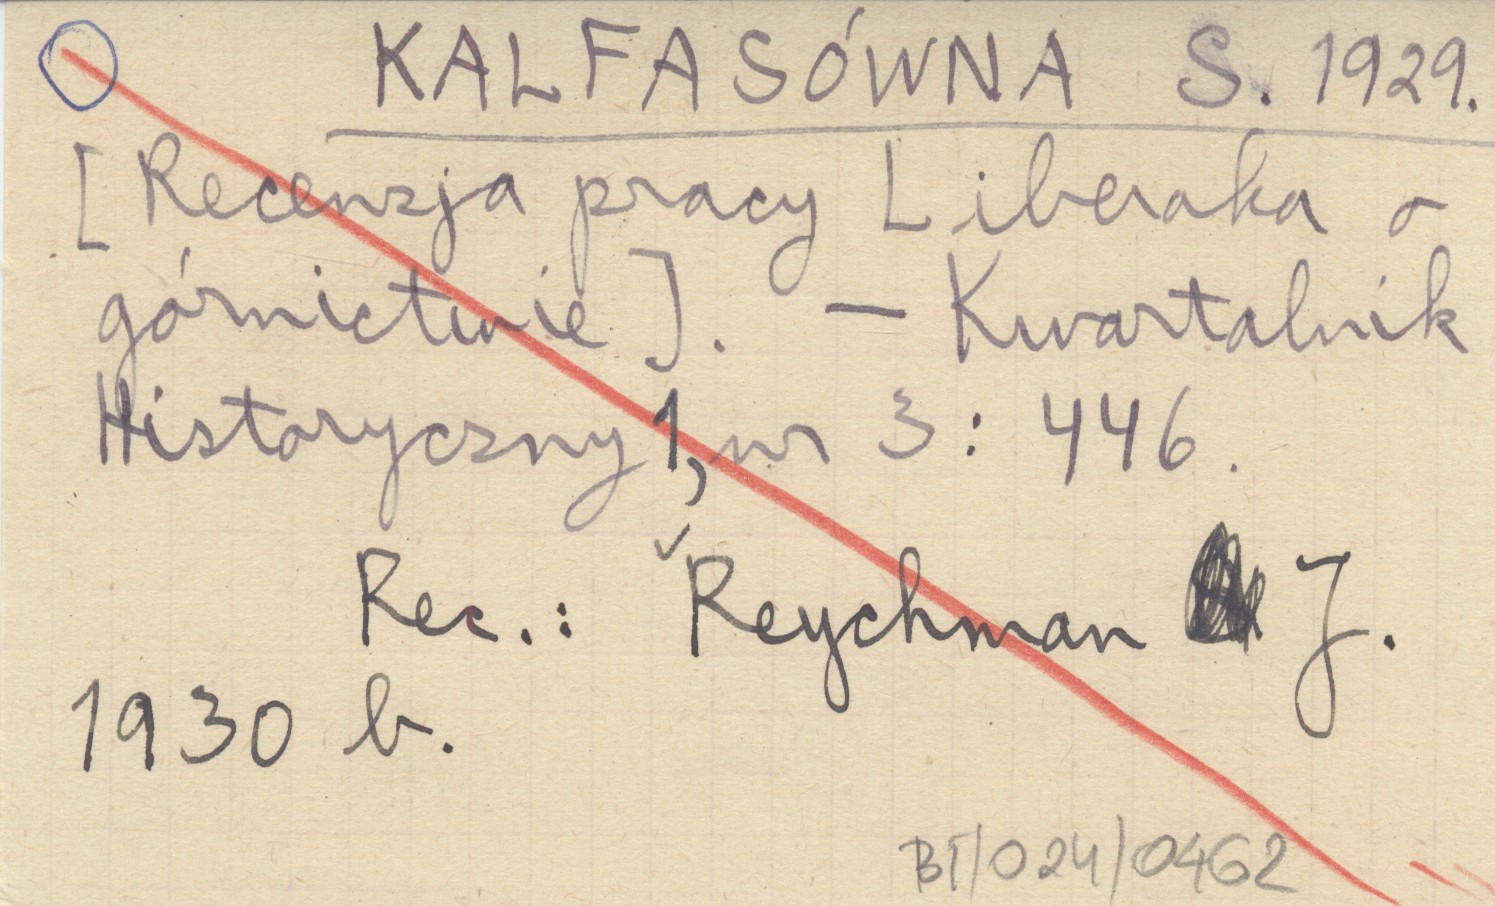 KALFASÓWNA S. 1929.
[Recenzja pracy Liberaka o
górnictwie]. – Kwartalnik
Historyczny 1, nr 3: 446.
Rec.: Reychman J.
1930 b.
BT/024/0462